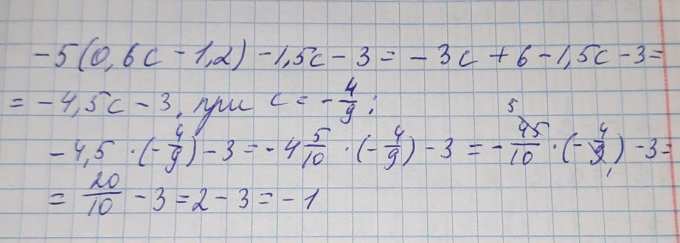 -5(0,6c - 1,2) - 1,5c - 3 = - 3c + 6 - 1,5c - 3 =
= - 4,5c - 3, при c = - 4/9;
- 4,5 · (- 4/9) - 3 = - 4 5/10 · (- 4/9) - 3 = - 45/10 · (- 4/9) - 3 =
= 20/10 - 3 = 2 - 3 = - 1